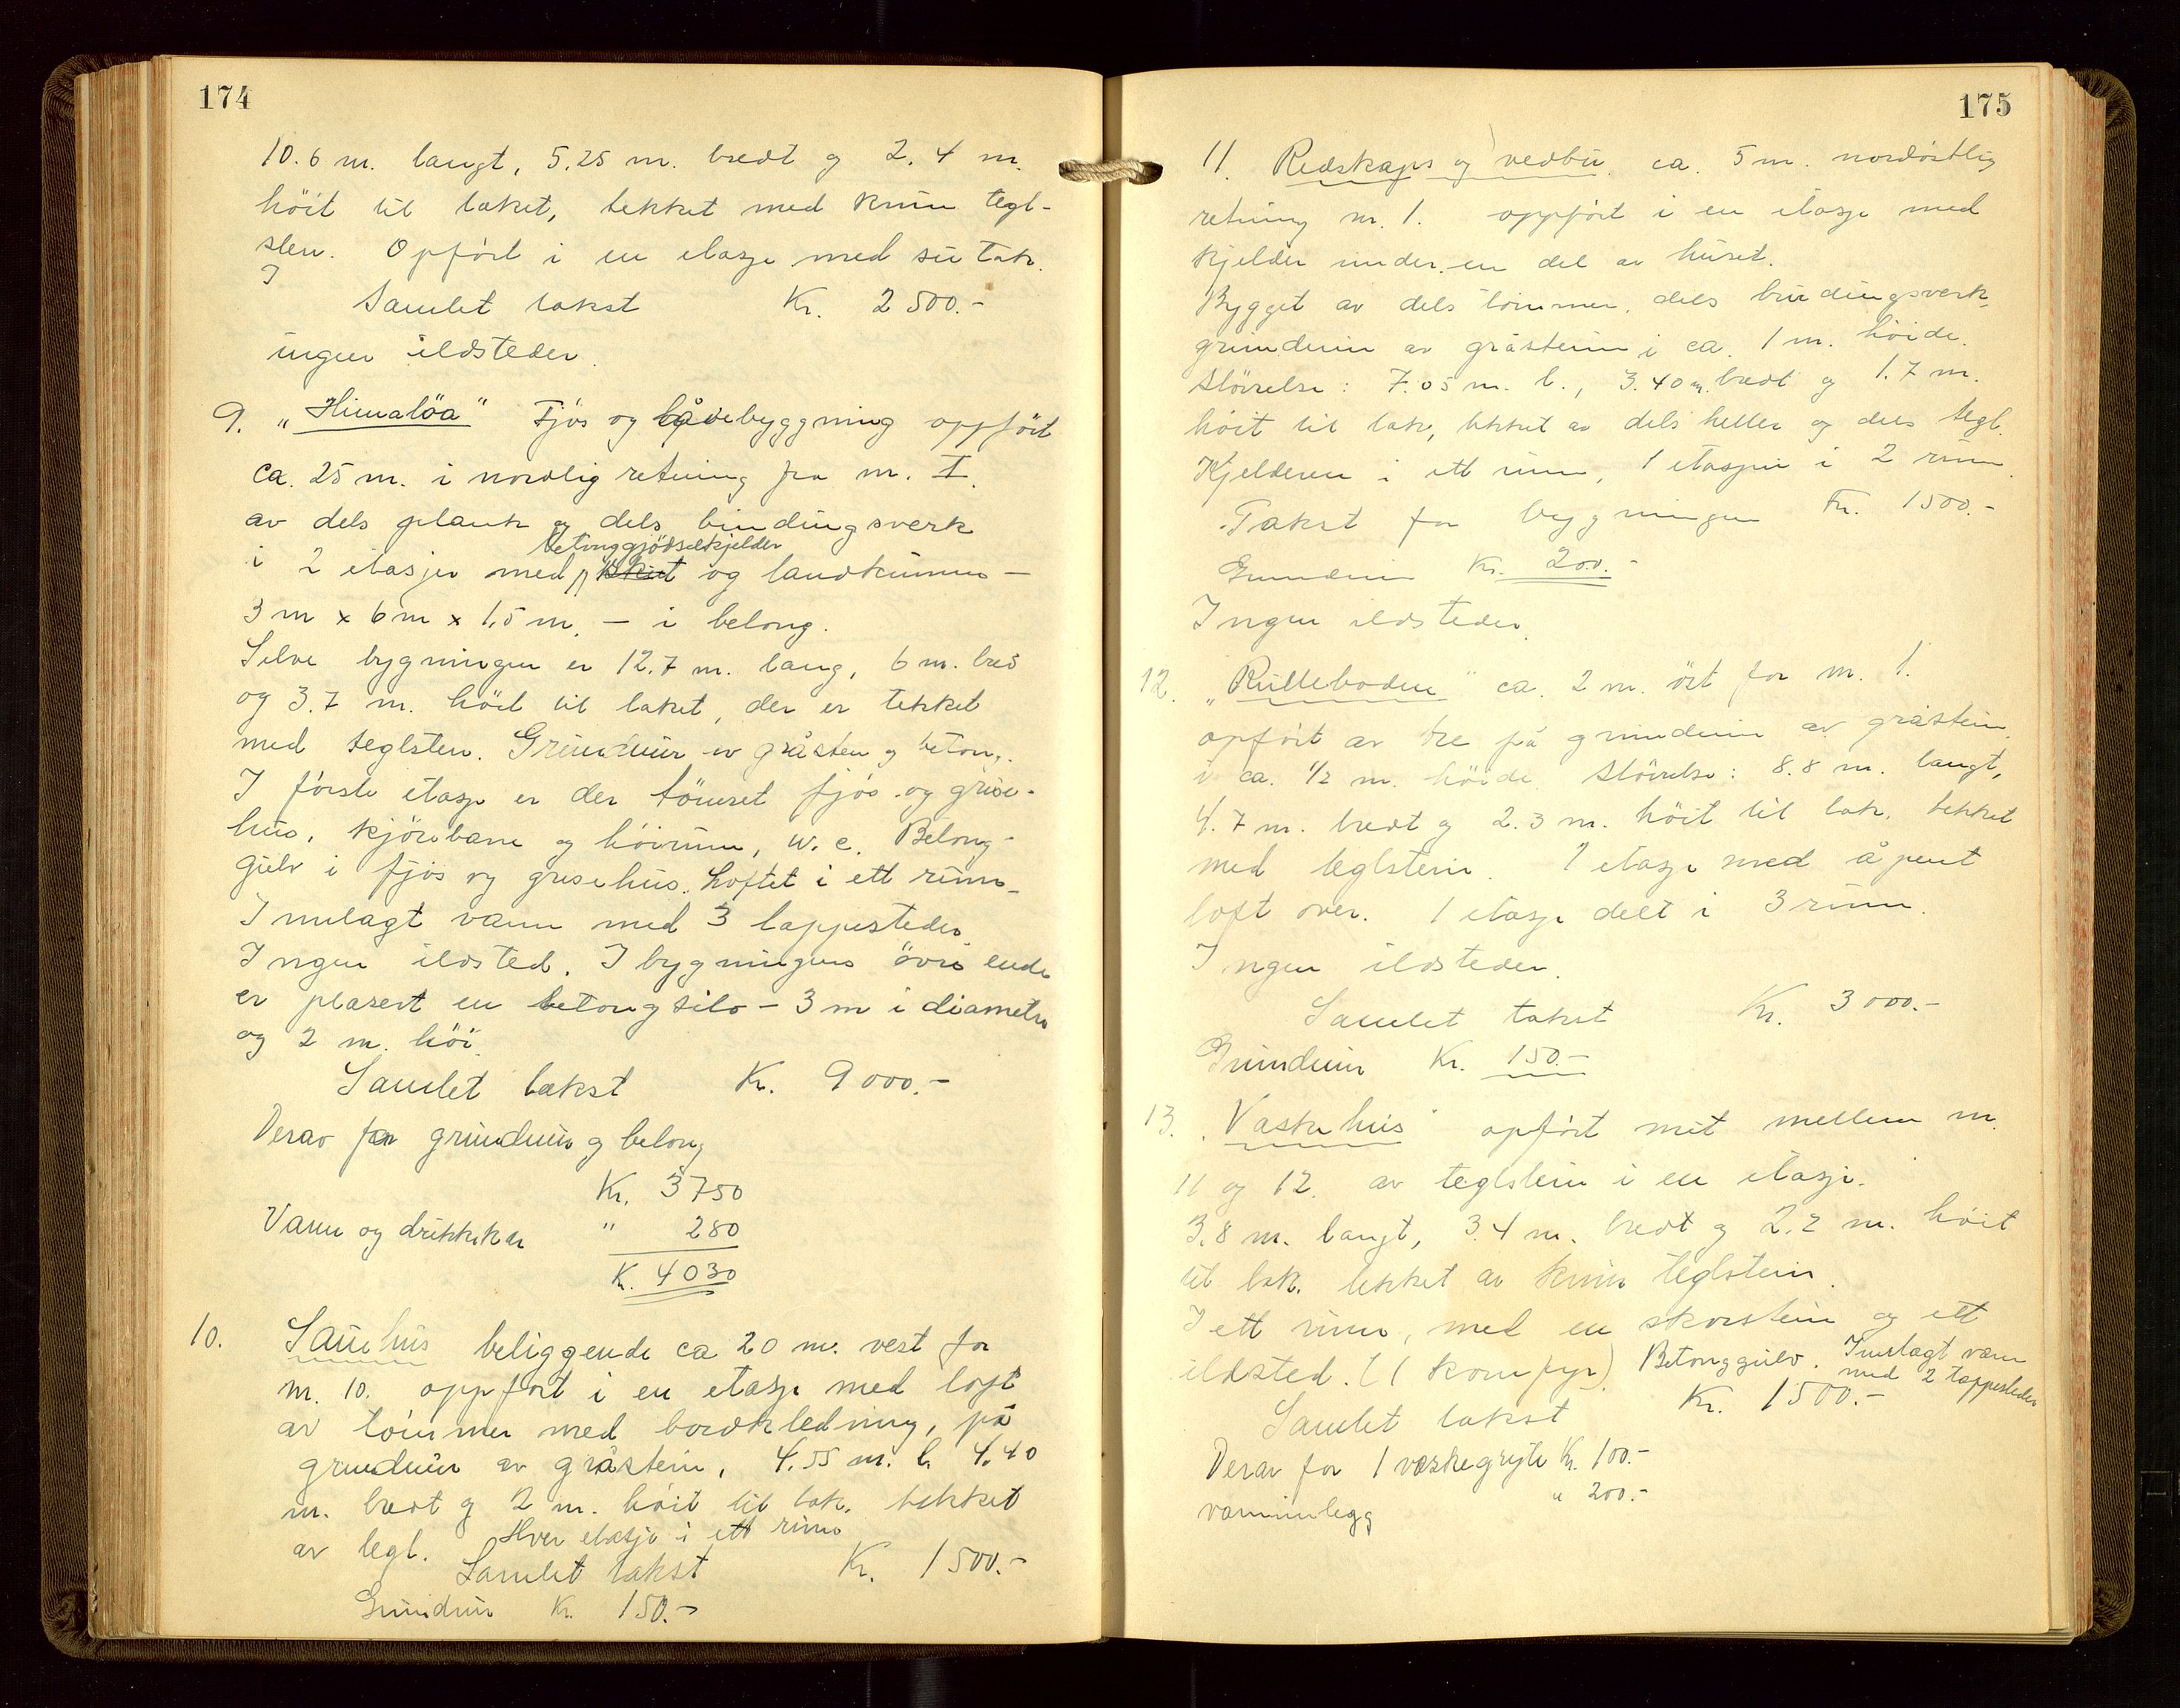 174
10.6 m. langt, 5,25 m. bredt og 2.4 m.
höit til taket, tekket med krum tegl-
sten. Opfört i en etasje med sutak.
I
Samlet takst Kr. 2500.-
ingen ildsteder.
9. "Himalöa" Fjös og låvebyggning oppfört
ca. 25 m. i nordlig retning fra nr. I.
av dels plank og dels bindingsverk
betonggjödselkjelder
i 2 etasjer med og landkummo -
3 m x 6 m x 1,5 m. - i betong.
Selve bygningen er 12.7 m. lang, 6 m. bred
og 3.7 m. höit til taket, der er tekket
med teglsten. Grundmur av gråsten og betong.
I förste etasje er der tömret fjös og grise-
hus, kjörebane og höirum, w.c. Betong-
gulv i fjös og grisehus. Loftet i ett rum.
Innlagt vann med 3 tappesteder
Ingen ildsted. I bygningens övre ende
er plasert en betongsilo - 3 m i diameter
og 2 m. höi.
Samlet takst Kr. 9000.-
Derav for grundmur og betong
Kr. 3750
Vann og drikkekar " 280
Kr. 4030
10. Sauehus beliggende ca 20 m. vest for
nr. 10. oppfört i en etasje med loft
av tömmer med bordkledning, på
grundmur av gråstein, 4.55 m. l. 4.40
m. bredt og 2 m. höit til tak, tekket
av tegl. Hver etasje i ett rum
Samlet takst Kr. 1500.-
Grundmur Kr. 150.-
175
11. Redskaps og vedbu. ca. 5 m. nordöstlig
retning nr. 1. oppfört i en etasje med
kjelder under en del av huset.
Bygget av dels tömmer, dels bindingsverk,
grundmur av gråstein i ca. 1 m. höide.
Störrelse: 7.05 m. l., 3.40 m. bredt og 1.7 m.
höit til tak, tekket av dels heller og dels tegl.
Kjelderen i ett rum, 1 etasjen i 2 rum.
Takst for bygningen Kr. 1500.-
Grundmur Kr. 200.-
Ingen ildsteder.
12. "Rulleboden" ca. 2 m. öst for nr. 1.
opfört av tre på grundmur av gråstein
i ca. 1/2 m. höide. Störrelse: 8.8 m. langt,
4.7 m. bredt og 2.3 m. höit til tak, tekket
med teglstein. 1 etasje med åpent
loft over. 1 etasje delt i 3 rum.
Ingen ildsteder.
Samlet takst Kr. 3000.-
Grundmur Kr. 150.-
13. "Vaskehus" opfört mit mellem nr.
11 og 12. av teglstein i en etasje.
3.8 m. langt, 3.4 m. bredt og 2.2 m. höit
til tak, tekket av krum teglstein.
I ett rum, med en skorstein og ett
ildsted. (1 komfyr). Betonggulv. Innlagt vann
med 2 tappesteder
Samlet takst Kr. 1500.-
Derav for 1 vaskegryte Kr. 100.-
vanninlegg " 200.-